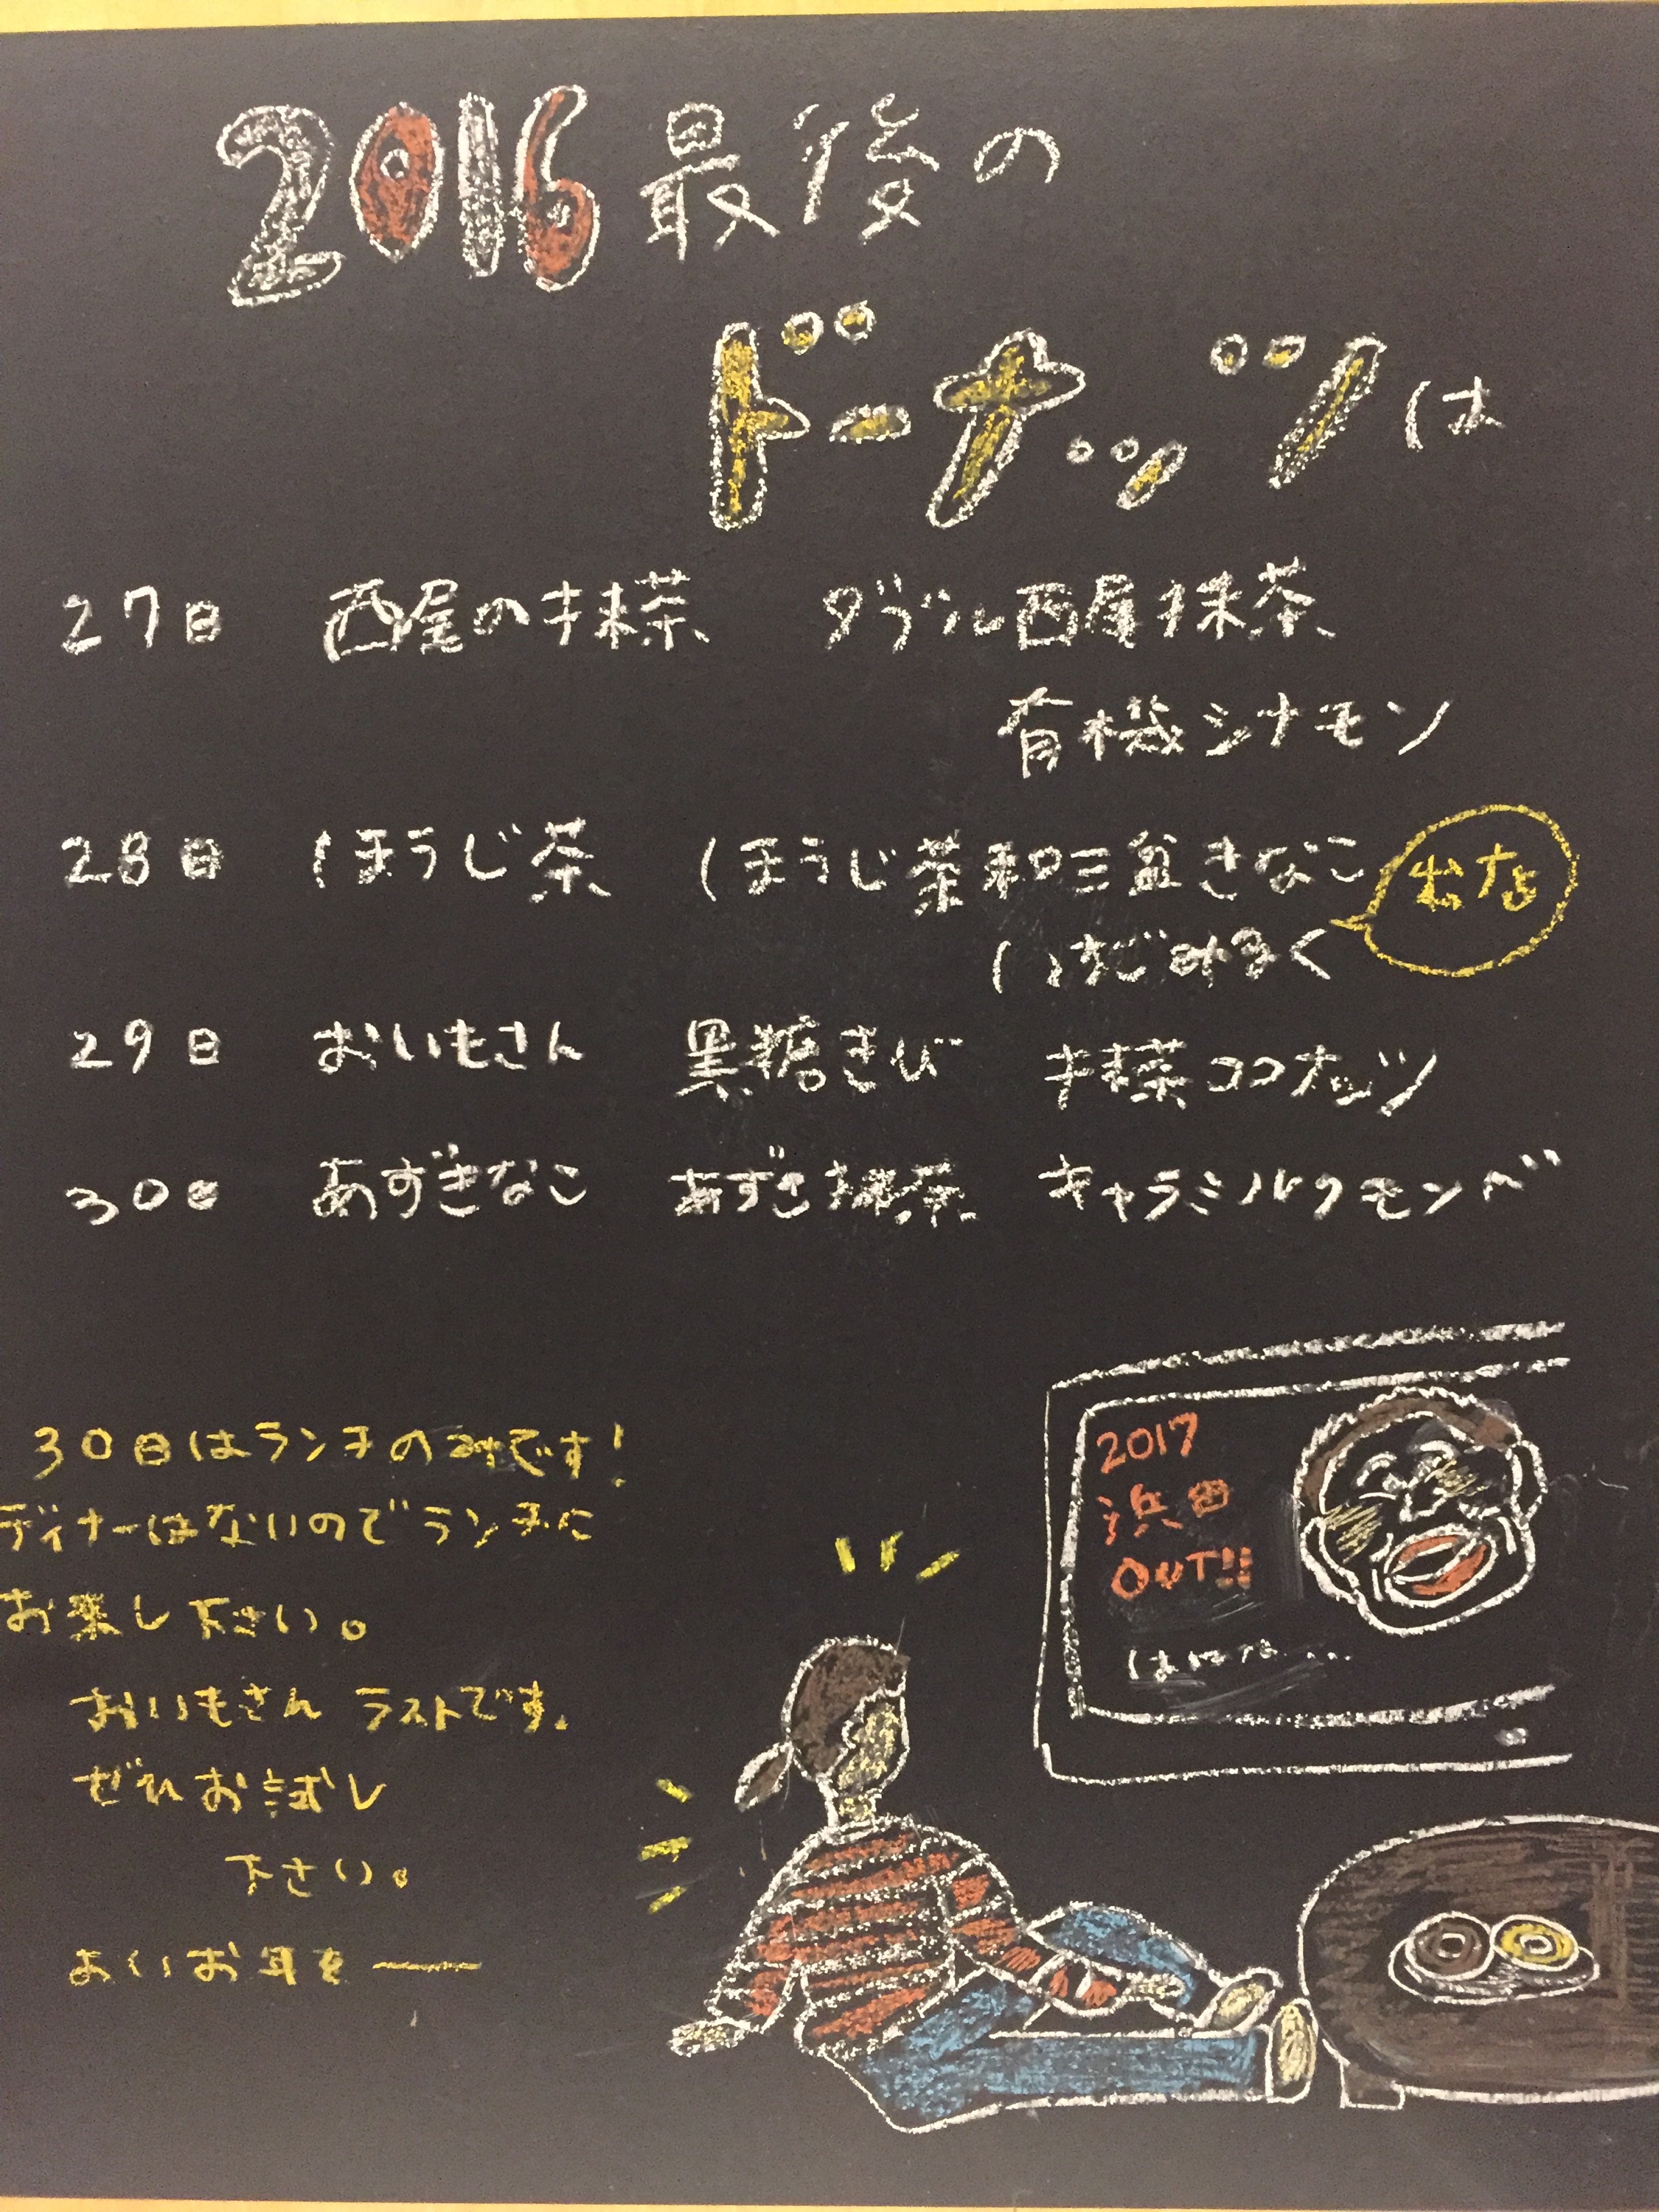 2016 最後の
ドーナッツは
27日 西尾の抹茶 ダブル西尾抹茶
有機シナモン
28日 ほうじ茶 ほうじ茶和三盆きなこ
いちごみるく
29日 おいもさん 黒糖きび 抹茶ココナッツ
30日 あずきなこ あずき抹茶 キャラミルクモンベ
30日はランチのみです!
ディナーはないのでランチに
お楽し下さい。
おいもさん ラストです。
ぜひお試し
下さい。
よいお年を——
2017
浜田
OUT!!